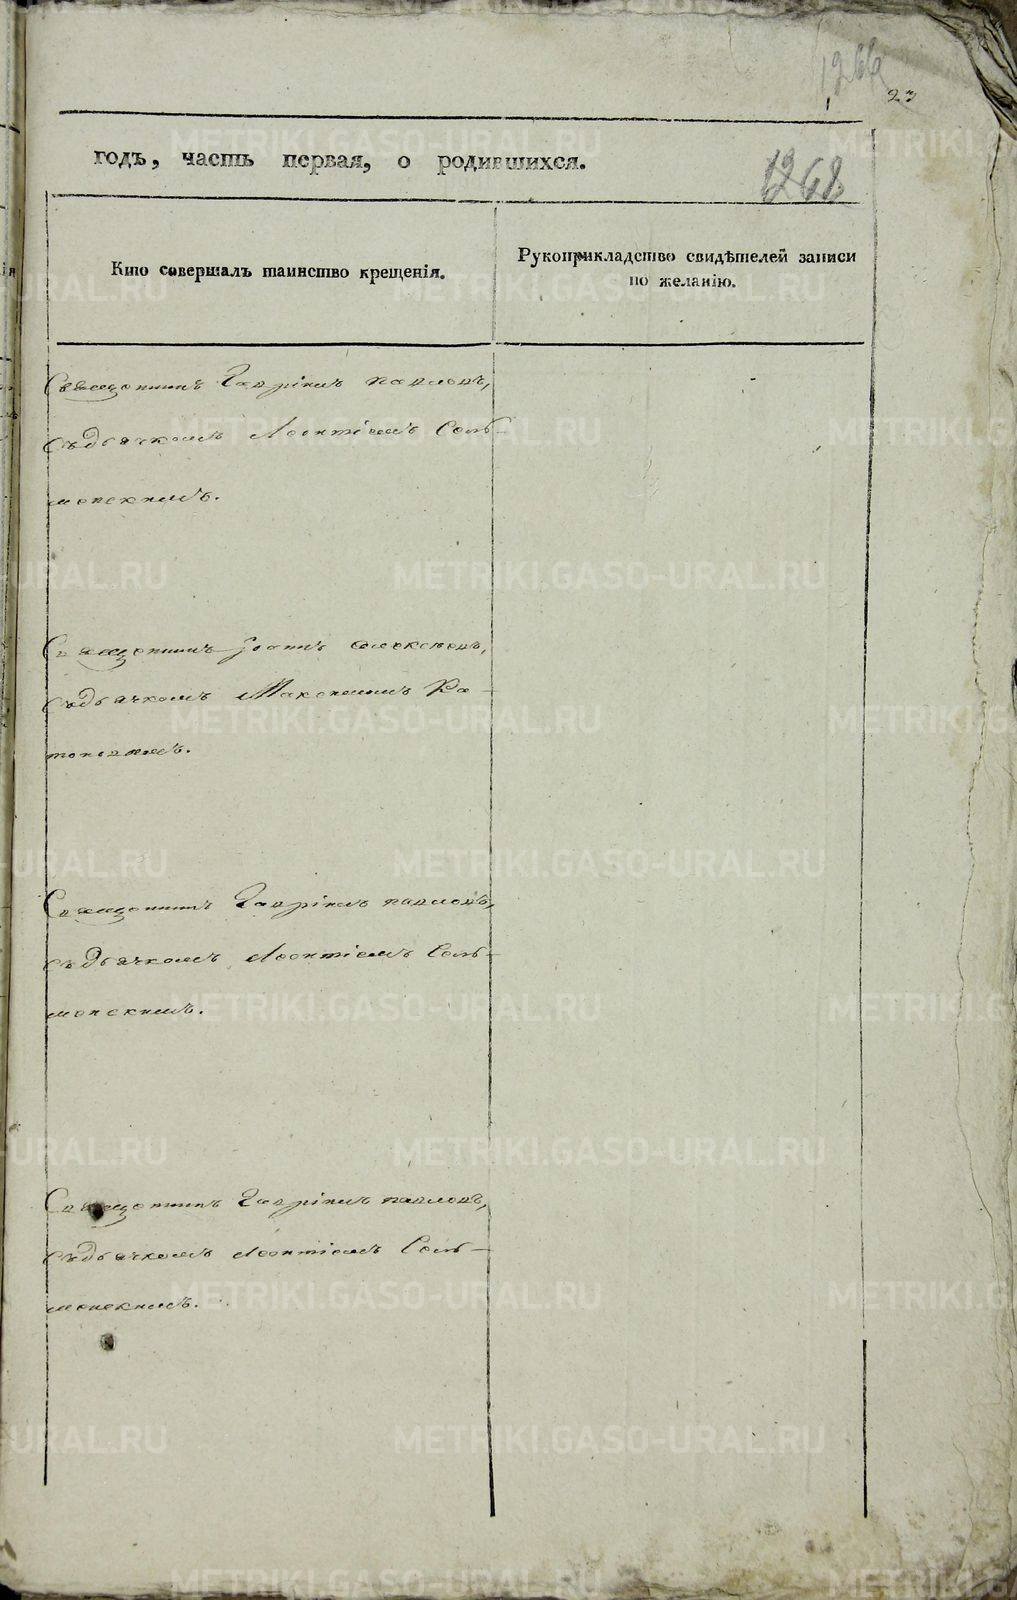 1266
23
годъ, часть первая, о родившихся.
1268
Кто совершалъ таинство крещенія.
Рукоприкладство свидѣтелей записи
по желанію.
Священникъ Гавріилъ Павловъ,
съ дьячкомъ Леонтіемъ Соль-
монскимъ.
Священникъ Іоаннъ Алексѣевъ,
съ дьячкомъ Максимомъ Ка-
Священникъ Гавріилъ Павловъ,
съ дьячкомъ Леонтіемъ Соль-
монскимъ.
Священникъ Гавріилъ Павловъ,
съ дьячкомъ Леонтіемъ Соль-
монскимъ.
METRIKI.GASO-URAL.RU